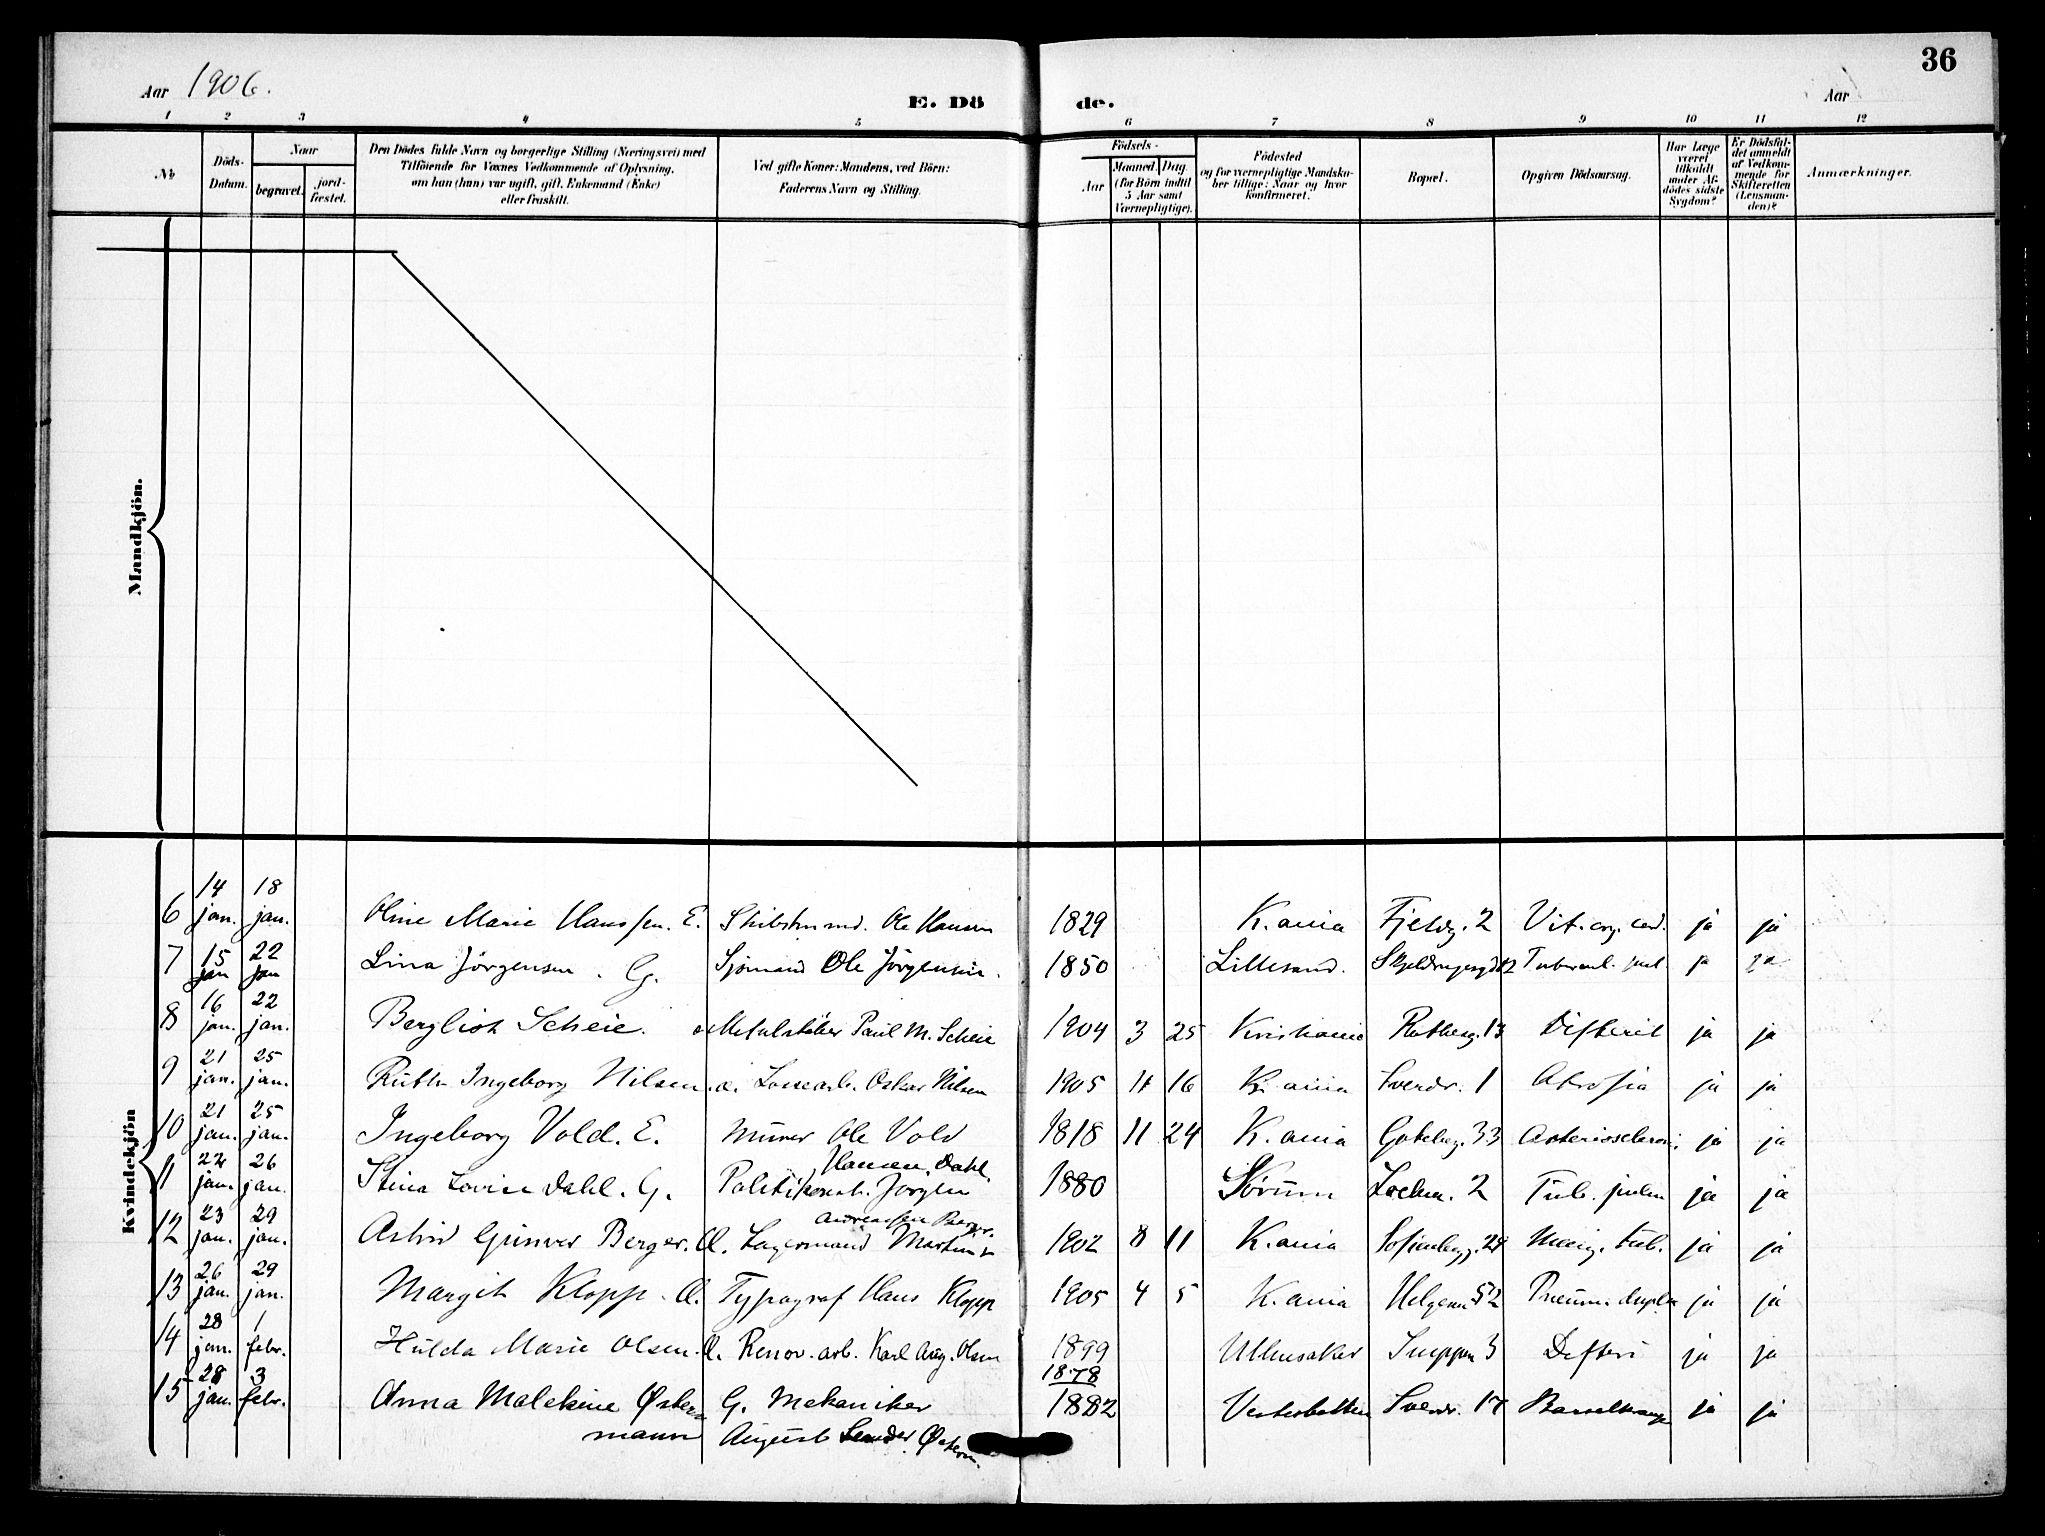 36
Aar 1906.
E. Dö de.
Aar
1 2 3 4 5 6 7 8 9 10 11 12
No
Döds-Datum.
Naar
begravet. jord-fæstet.
Den Dödes fulde Navn og borgerlige Stilling (Næringsvei) med
Tilföiende for Voxnes Vedkommende af Oplysning,
om han (hun) var ugift, gift, Enkemand (Enke)
eller fraskilt.
Ved gifte Koner: Mandens, ved Börn:
Faderens Navn og Stilling.
Födsels-
Aar Maaned. Dag.
(for Börn indtil
5 Aar samt
Værnepligtige).
Födested
og for værnepligtige Mandska-
ber tillige: Naar og hvor
konfirmeret.
Bopæl.
Opgiven Dödsaarsag.
Har Læge
været
tilkaldt
under Af-
dödes sidste
Sygdom?
Er Dödsfal-
det anmeldt
af Vedkom-
mende for
Skifteretten
(Lensman-
den)?
Anmærkninger.
Mandkjön.
Kvindekjön
6 14 jan. 18 jan. Oline Marie Hanssen. E. Ole Hansen 1829 K.ania Fjeldg. 2 Vit. org. cord. ja ja
7 15 jan 22 jan Lina Jörgensen. G. Sjömand Ole Jörgensen. 1850 Lillesand. ja ja
8 16 jan. 22 jan. Bergliot Scheie. Paul M. Scheie 1904 3 25 Kristiania 13 Difterit ja ja
9 21 jan. 25 jan. Ruth Ingeborg Nilsen. Oskar Nilsen 1905 11 16 K. ania Sverdr. 1 Atrofia ja ja
10 21 jan. 25 jan. Ingeborg Vold. E. Murer Ole Vold 1818 11 24 K. ania Goteborg. 33 ja ja
11 jan. 26 jan. Stina Lovise Dahl. G. Politikonst. Jörgen Hansen Dahl. 1880 Sörum 2 Tub. pulm ja ja
12 23 jan. 29 jan. Astrid Gunver Berger. Lagermand Martin Andreassen Berger 1902 8 11 K. ania Sofienbgg. Mening. tub. ja ja
13 26 jan. 29 jan. Margit Klopp. Typograf Hans Klopp 1905 4 5 K. ania Helgesen 52 Pneum. dupla ja ja
14 28 jan. 1 febr. Hulda Marie Olsen. Renov. arb. Karl Aug. Olsen 1899 Ullensaker 3 Defteri ja ja
15 28 jan. 3 febr. Anna Malekine Öster-
mann G. Mekaniker
August 1878
1882 Vesterbotten Sverdr. 17 ja ja